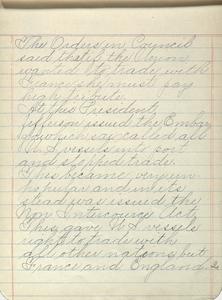 The Orders in Council
said that if the Union
wanted to trade with
France she must pay
high tribute.
At this President
Jefferson issued the Embargo
which called all
U.S. vessels into port
and stopped trade.
This became very un-
popular and in its
stead was issued the
Non Intercourse Act,
This gave U.S. vessels
right to trade with
all other nations but
France and England.